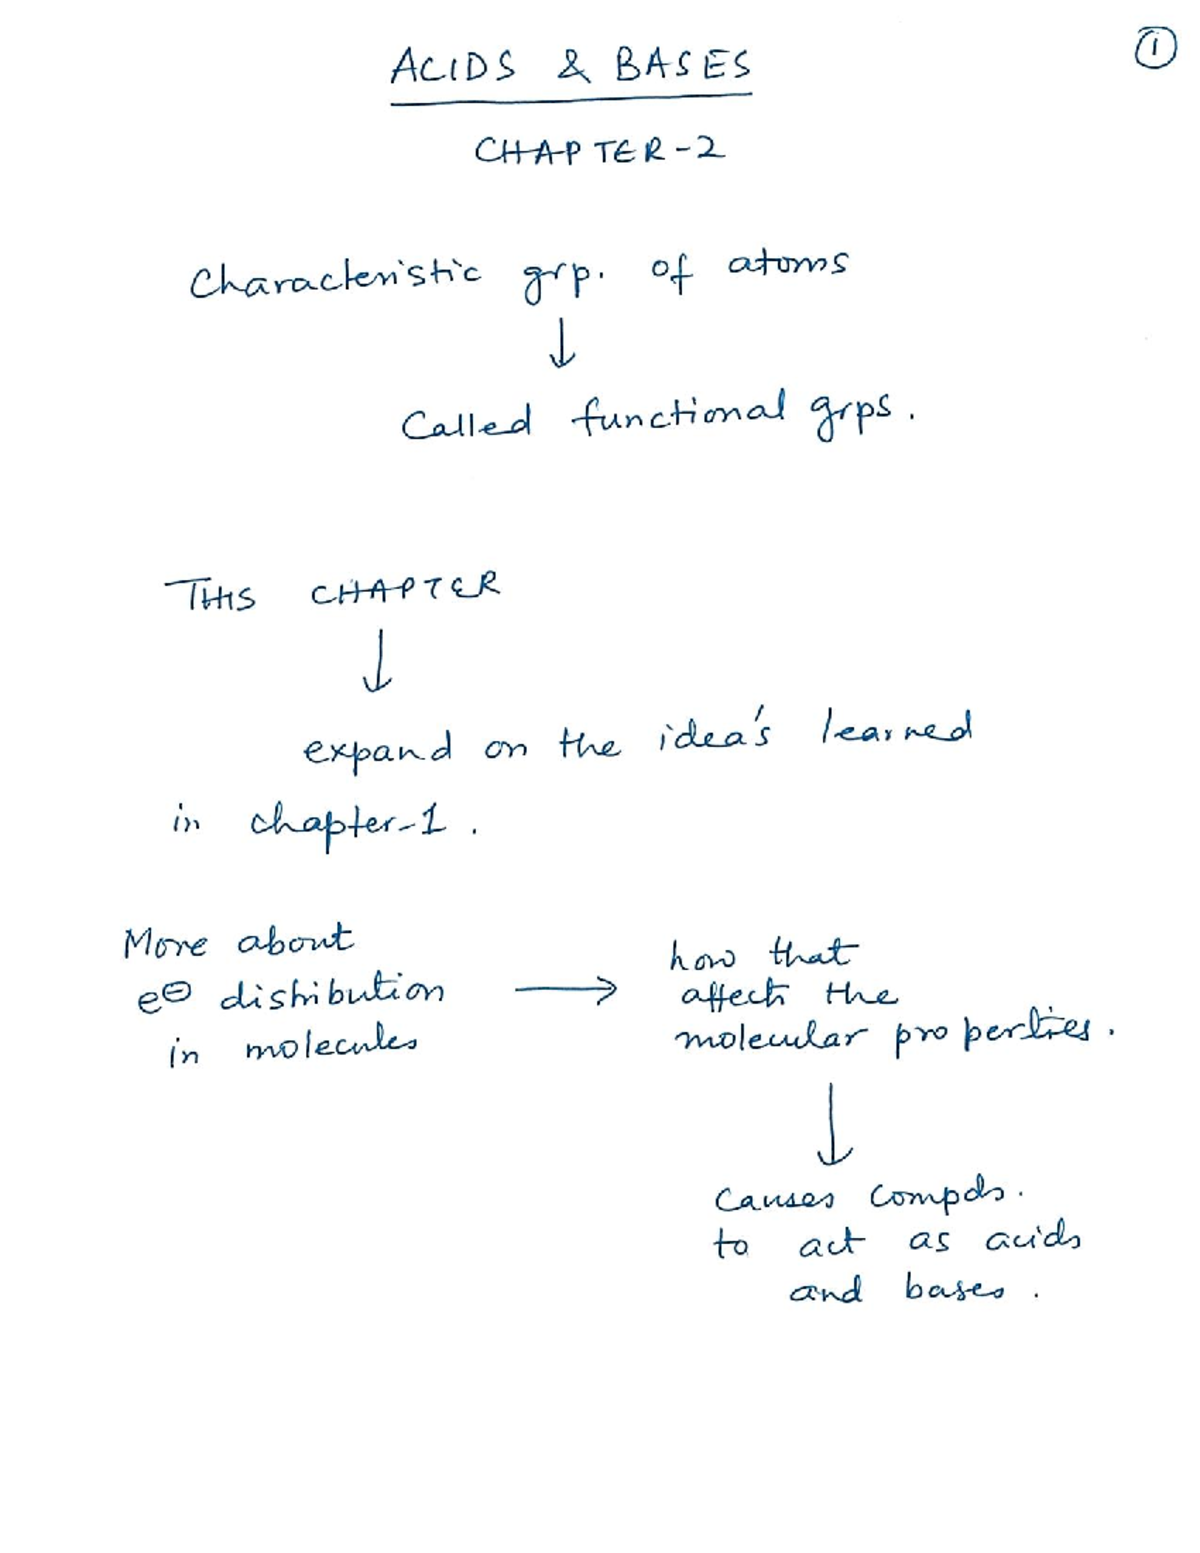 ①
ACIDS & BASES
CHAPTER-2
Characteristic grp. of atoms
↓
Called functional grps.
THIS CHAPTER
↓
expand on the idea's learned
in chapter-1.
More about
e⊖ distribution
in molecules
→
how that
affects the
molecular properties.
↓
causes compds.
to act as acids
and bases.